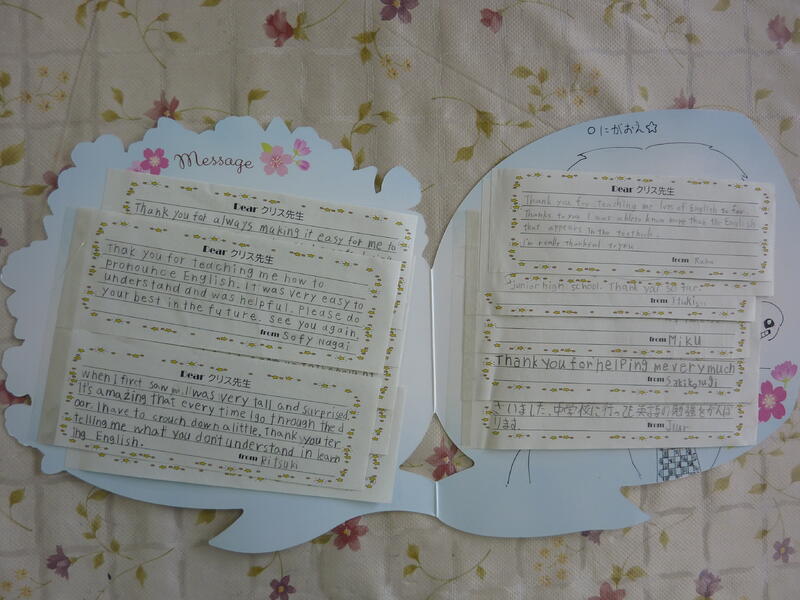 Message
Dear クリス先生
Thank you for always making it easy for me to
Dear クリス先生
Thak you for teaching me how to
pronounce English. It was very easy to
understand and was helpful. Please do
your best in the future. See you again.
from Sofy Nagai
Dear クリス先生
When I first saw me it was very tall and surprised.
It's amazing that every time I go through the d
oor. I have to crouch down a little. Thank you for
telling me what you don't understand in learn
ing English.
from Ritsuki
○にがおえ☆
Dear クリス先生
Thank you for teaching me lots of English so far.
Thanks to you I was able to know more than the English
that appears in the textbook.
I'm really thankful to you.
from
junior high school. Thank you so far.
from
from Miku
Thank you for helping me very much
from
ざいました。中学校に行っても英語の勉強をがんば
ります。
from